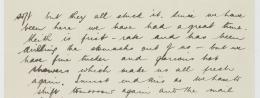 soft but they all stuck it. Since we have
been here we have had a great time.
Keith is first rate and has been
drilling the stomachs out of us — but we
have fine tucker and glorious hot
showers which make us all fresh
again. Cannot make this as we have to
shift tomorrow again and the mail